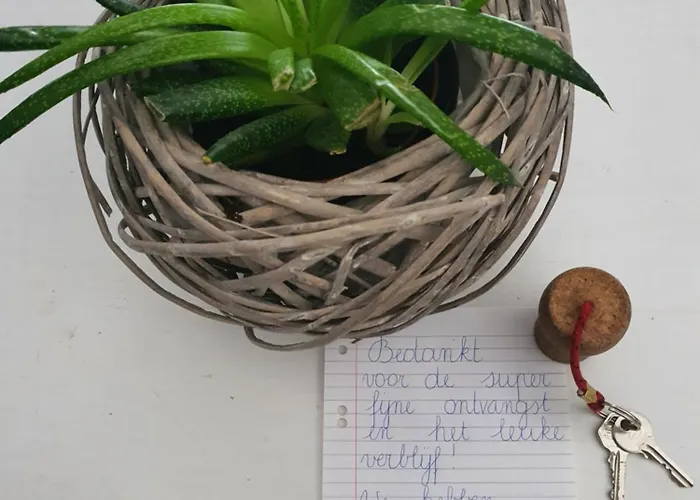 Bedankt
voor de super
fijne ontvangst
en het leuke
verblijf!
We hebben